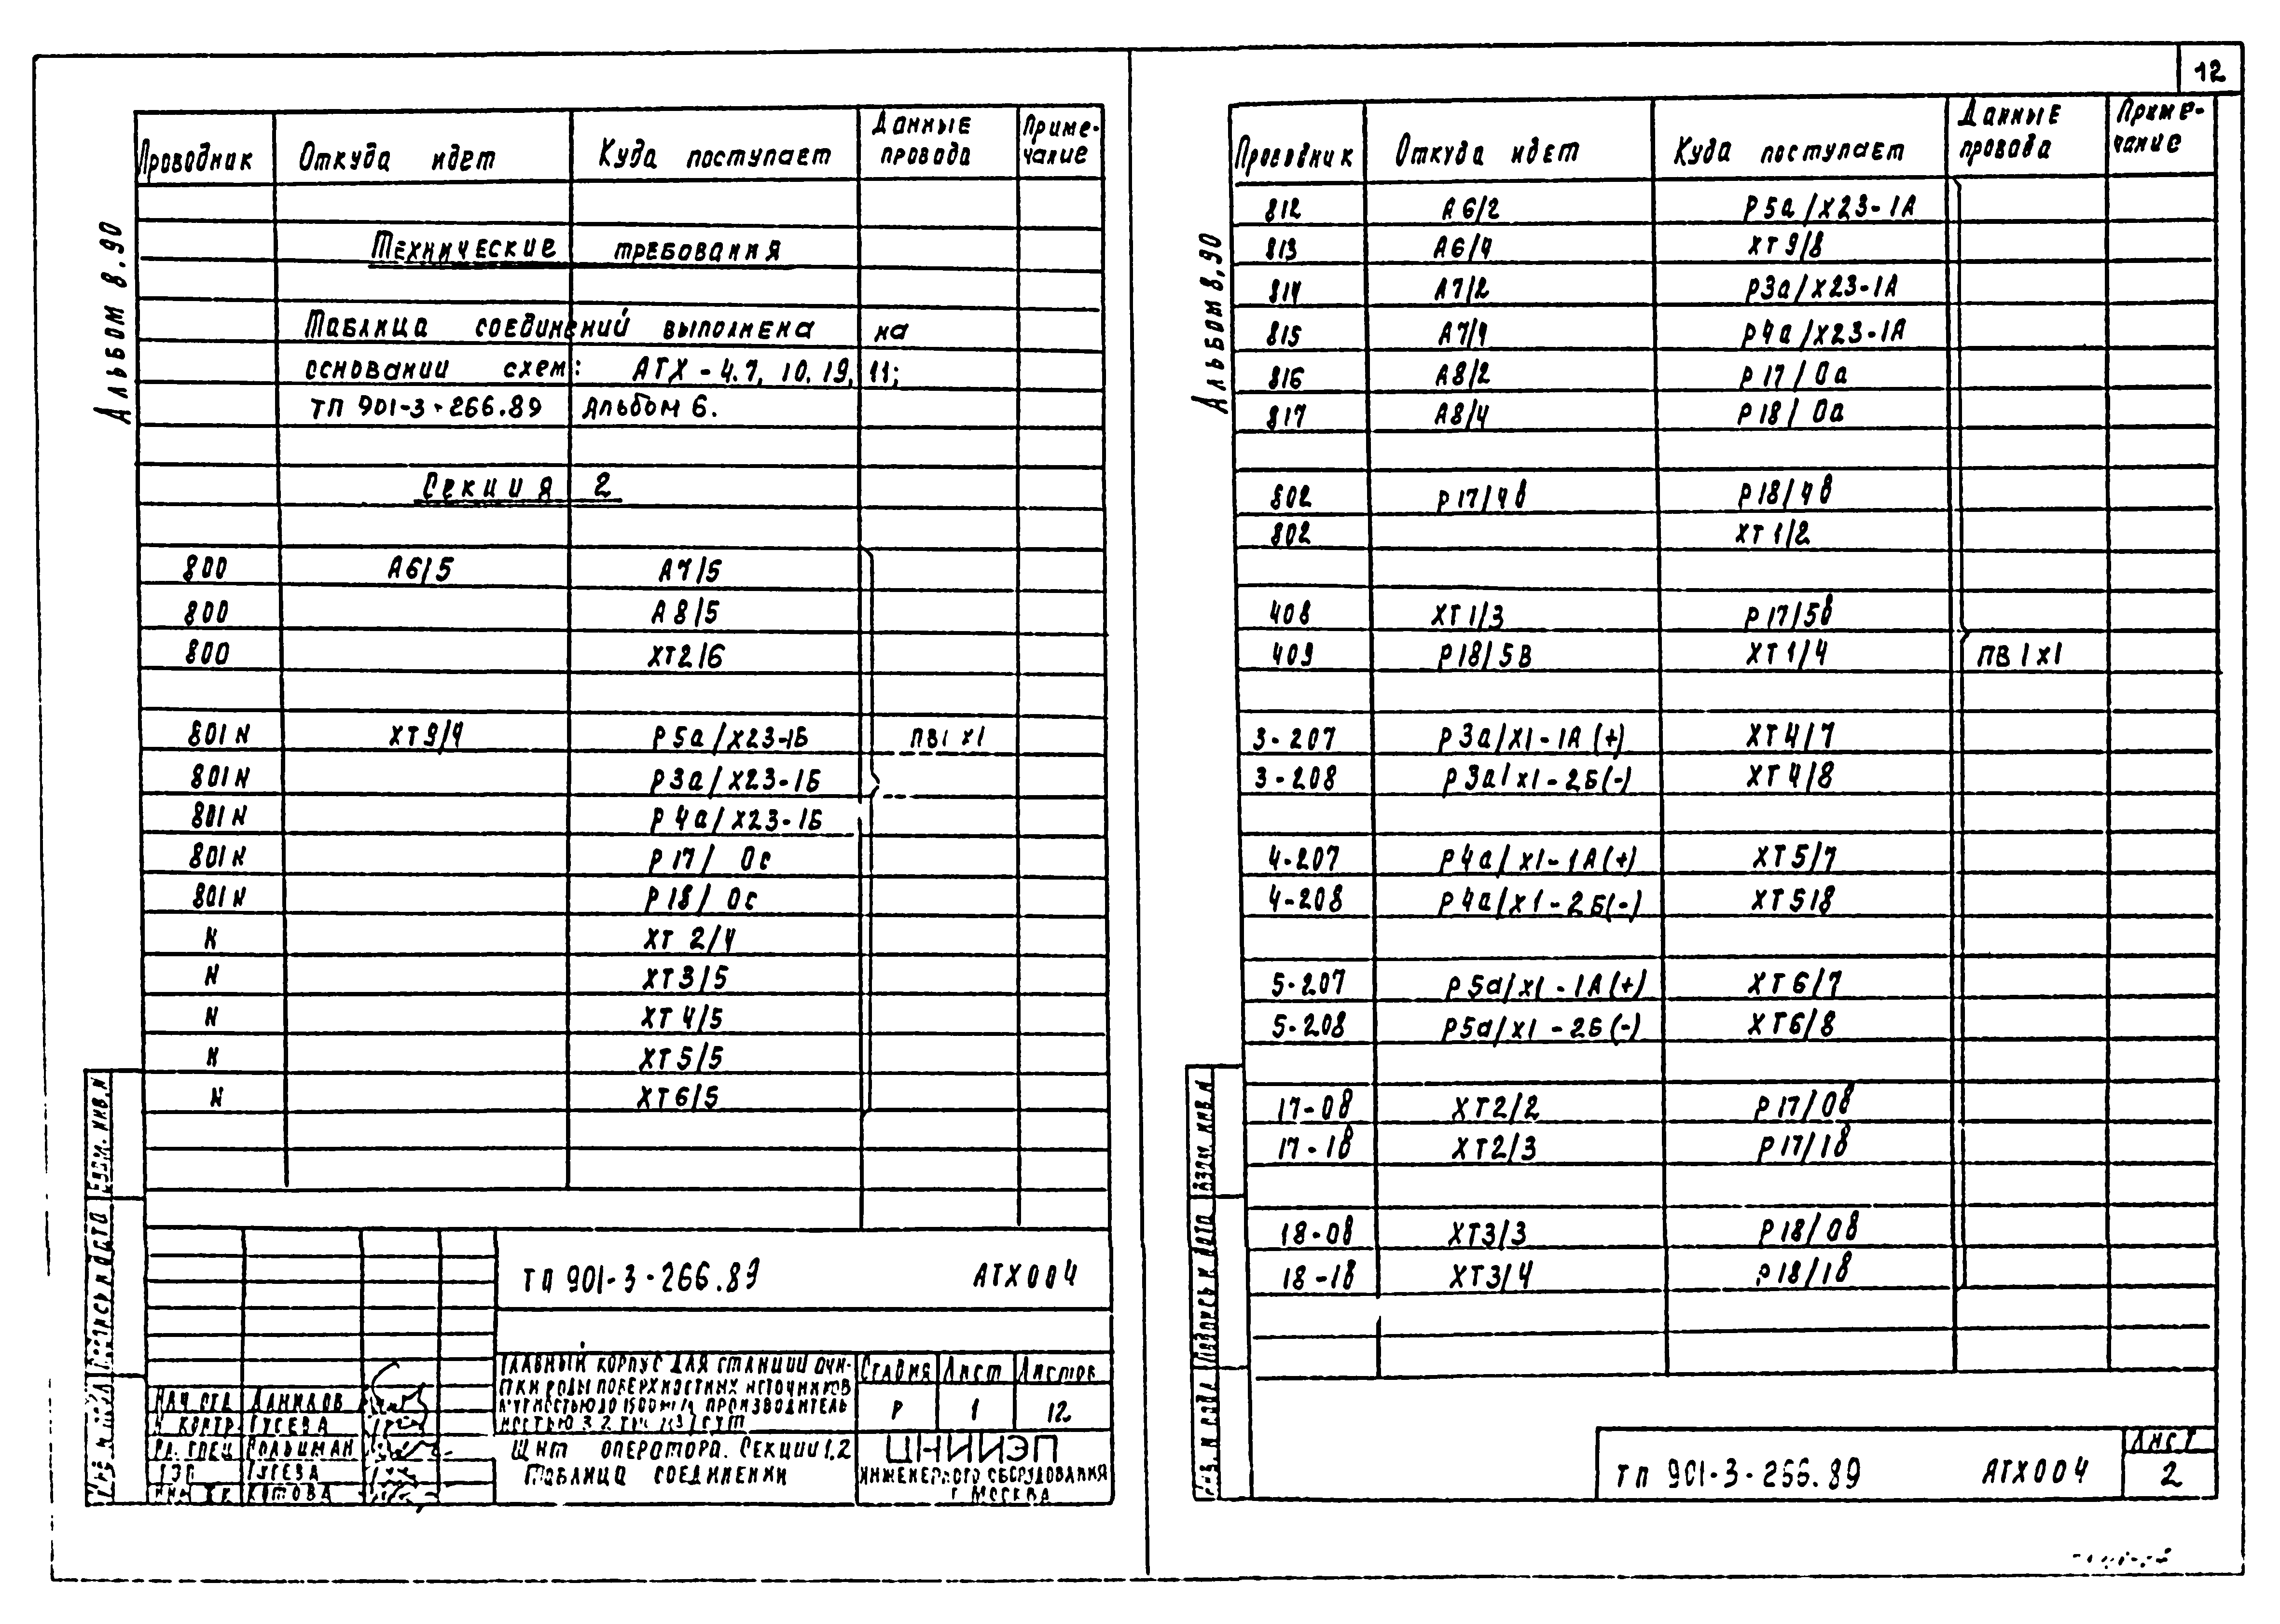 12
Альбом 8.90
Проводник Откуда идет Куда поступает Данные провода Приме-чание
Технические требования
Таблица соединений выполнена на
основании схем: АТХ - 4.7, 10, 19, 11;
ТП 901-3-266.89 Альбом 6.
Секция 2
800 А6/5 А7/5
800 А8/5
800 ХТ2/6
801N ХТ9/4 Р5а/Х23-1Б ПВ1 х1
801N Р3а/Х23-1Б
801N Р4а/Х23-1Б
801N Р17/ 0с
801N Р18/ 0с
N ХТ 2/4
N ХТ3/5
N ХТ4/5
N ХТ5/5
N ХТ6/5
ТП 901-3-266.89 АТХ004
Главный корпус для станции очи-
стки воды поверхностных источников
мутностью до 1500 мг/л производитель
ностью 3.2 тыс. м3/сут
Стадия Лист Листов
Р 1 12
Щит оператора. Секции 1,2
Таблица соединений
ЦНИИЭП
инженерного оборудования
г. Москва
Нач отд Данилов
Н контр. Гусева
Гл. спец
ГЭП Гусева
Котова
Взам. инв. N
Подпись и дата
Инв. N подл
Альбом 8.90
Проводник Откуда идет Куда поступает Данные провода Приме-чание
812 А6/2 Р5а/Х23-1А
813 А6/4 ХТ9/8
814 А7/2 Р3а/Х23-1А
815 А7/4 Р4а/Х23-1А
816 А8/2 Р17/0а
817 А8/4 Р18/0а
802 Р17/4в Р18/4в
802 ХТ1/2
408 ХТ1/3 Р17/5в
409 Р18/5В ХТ1/4 ПВ1х1
3-207 Р3а/Х1-1А(+) ХТ4/7
3-208 Р3а/Х1-2Б(-) ХТ4/8
4-207 Р4а/Х1-1А(+) ХТ5/7
4-208 Р4а/Х1-2Б(-) ХТ5/8
5-207 Р5а/Х1-1А(+) ХТ6/7
5-208 Р5а/Х1-2Б(-) ХТ6/8
17-0в ХТ2/2 Р17/0в
17-1в ХТ2/3 Р17/1в
18-0в ХТ3/3 Р18/0в
18-1в ХТ3/4 Р18/1в
Взам. инв. N
Подпись и дата
Инв. N подл
ТП 901-3-266.89 АТХ004
Лист
2